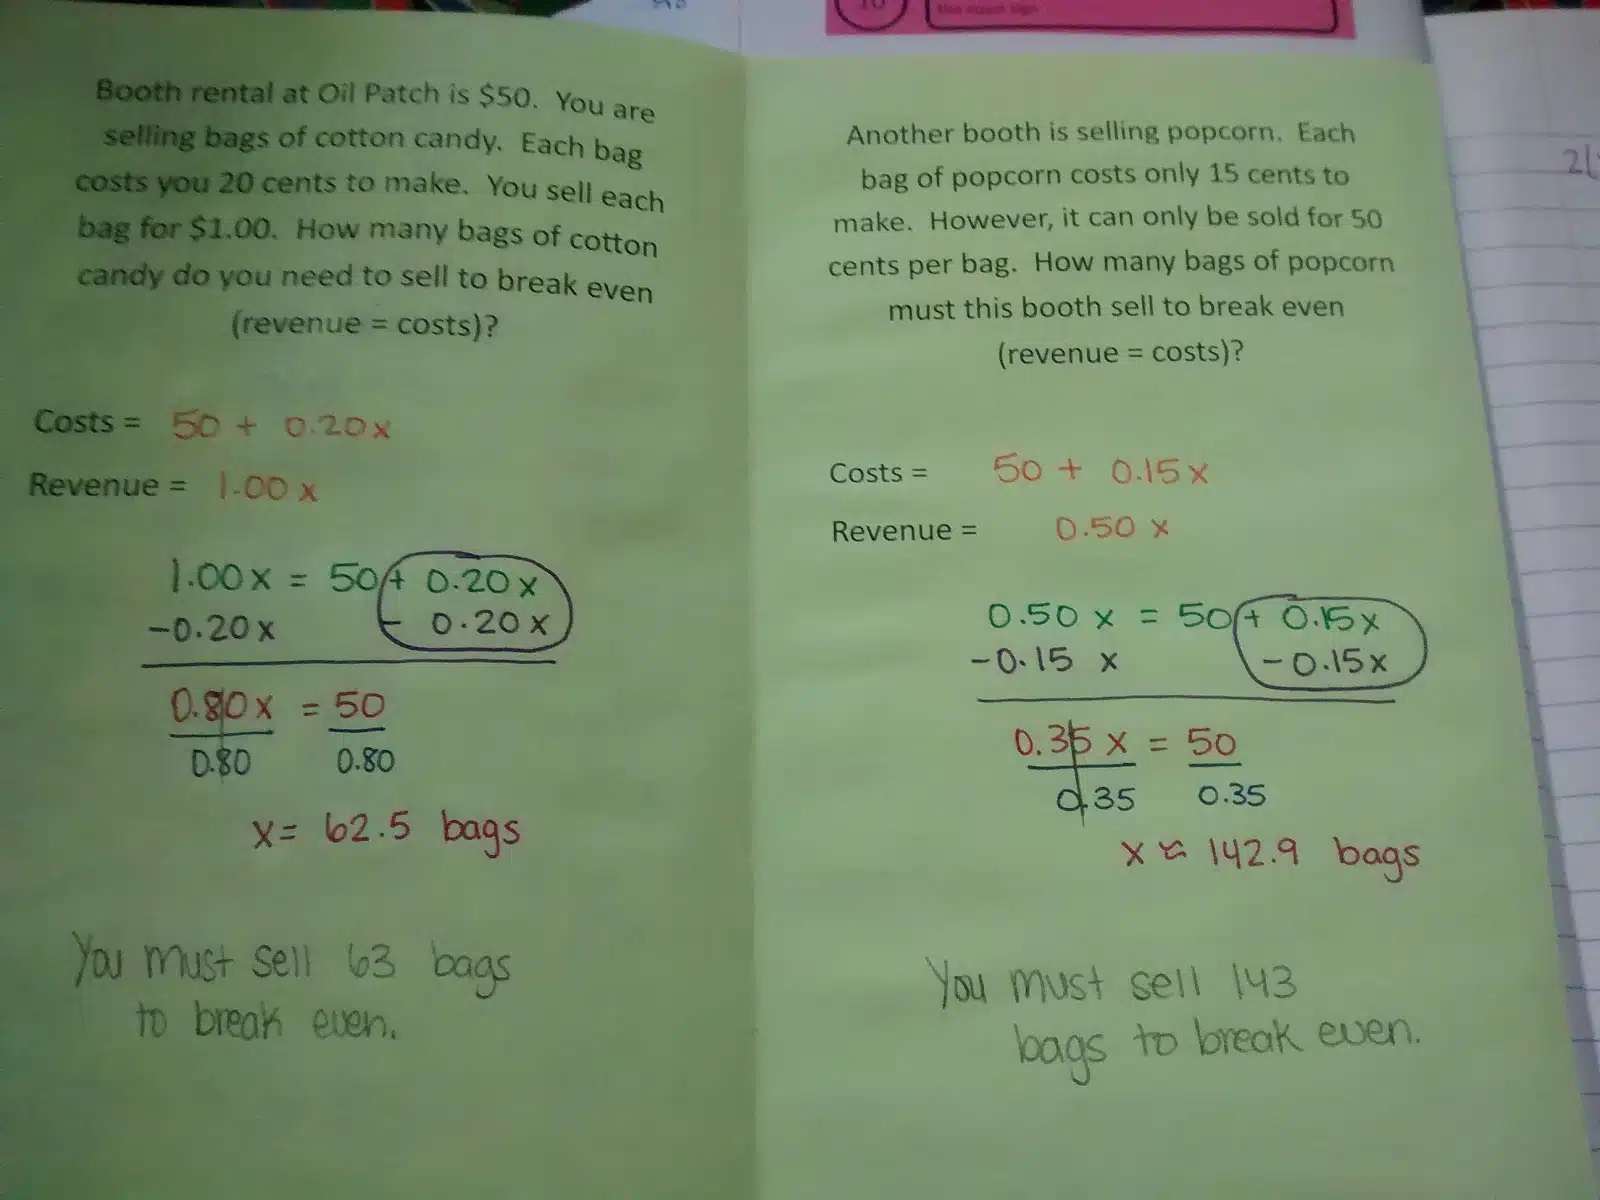 10
Booth rental at Oil Patch is $50. You are
selling bags of cotton candy. Each bag
costs you 20 cents to make. You sell each
bag for $1.00. How many bags of cotton
candy do you need to sell to break even
(revenue = costs)?
Costs = 50 + 0.20x
Revenue = 1.00 x
1.00x = 50 + 0.20x
-0.20x - 0.20x
0.80x = 50
0.80 0.80
x = 62.5 bags
You must sell 63 bags
to break even.
Another booth is selling popcorn. Each
bag of popcorn costs only 15 cents to
make. However, it can only be sold for 50
cents per bag. How many bags of popcorn
must this booth sell to break even
(revenue = costs)?
Costs = 50 + 0.15x
Revenue = 0.50 x
0.50 x = 50 + 0.15x
-0.15 x -0.15x
0.35 x = 50
0.35 0.35
x ≈ 142.9 bags
You must sell 143
bags to break even.